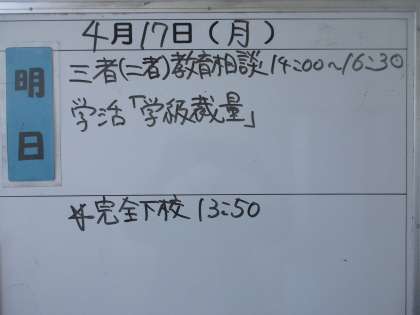 4月17日(月)
明日
三者(二者)教育相談14:00~16:30
学活「学級裁量」
☆完全下校 13:50